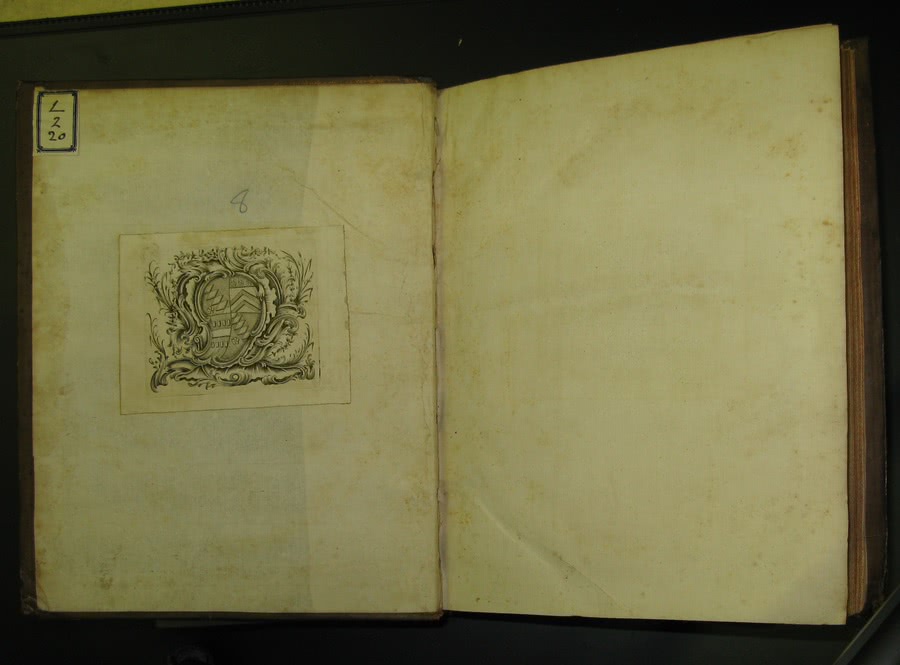 L
2
20
8